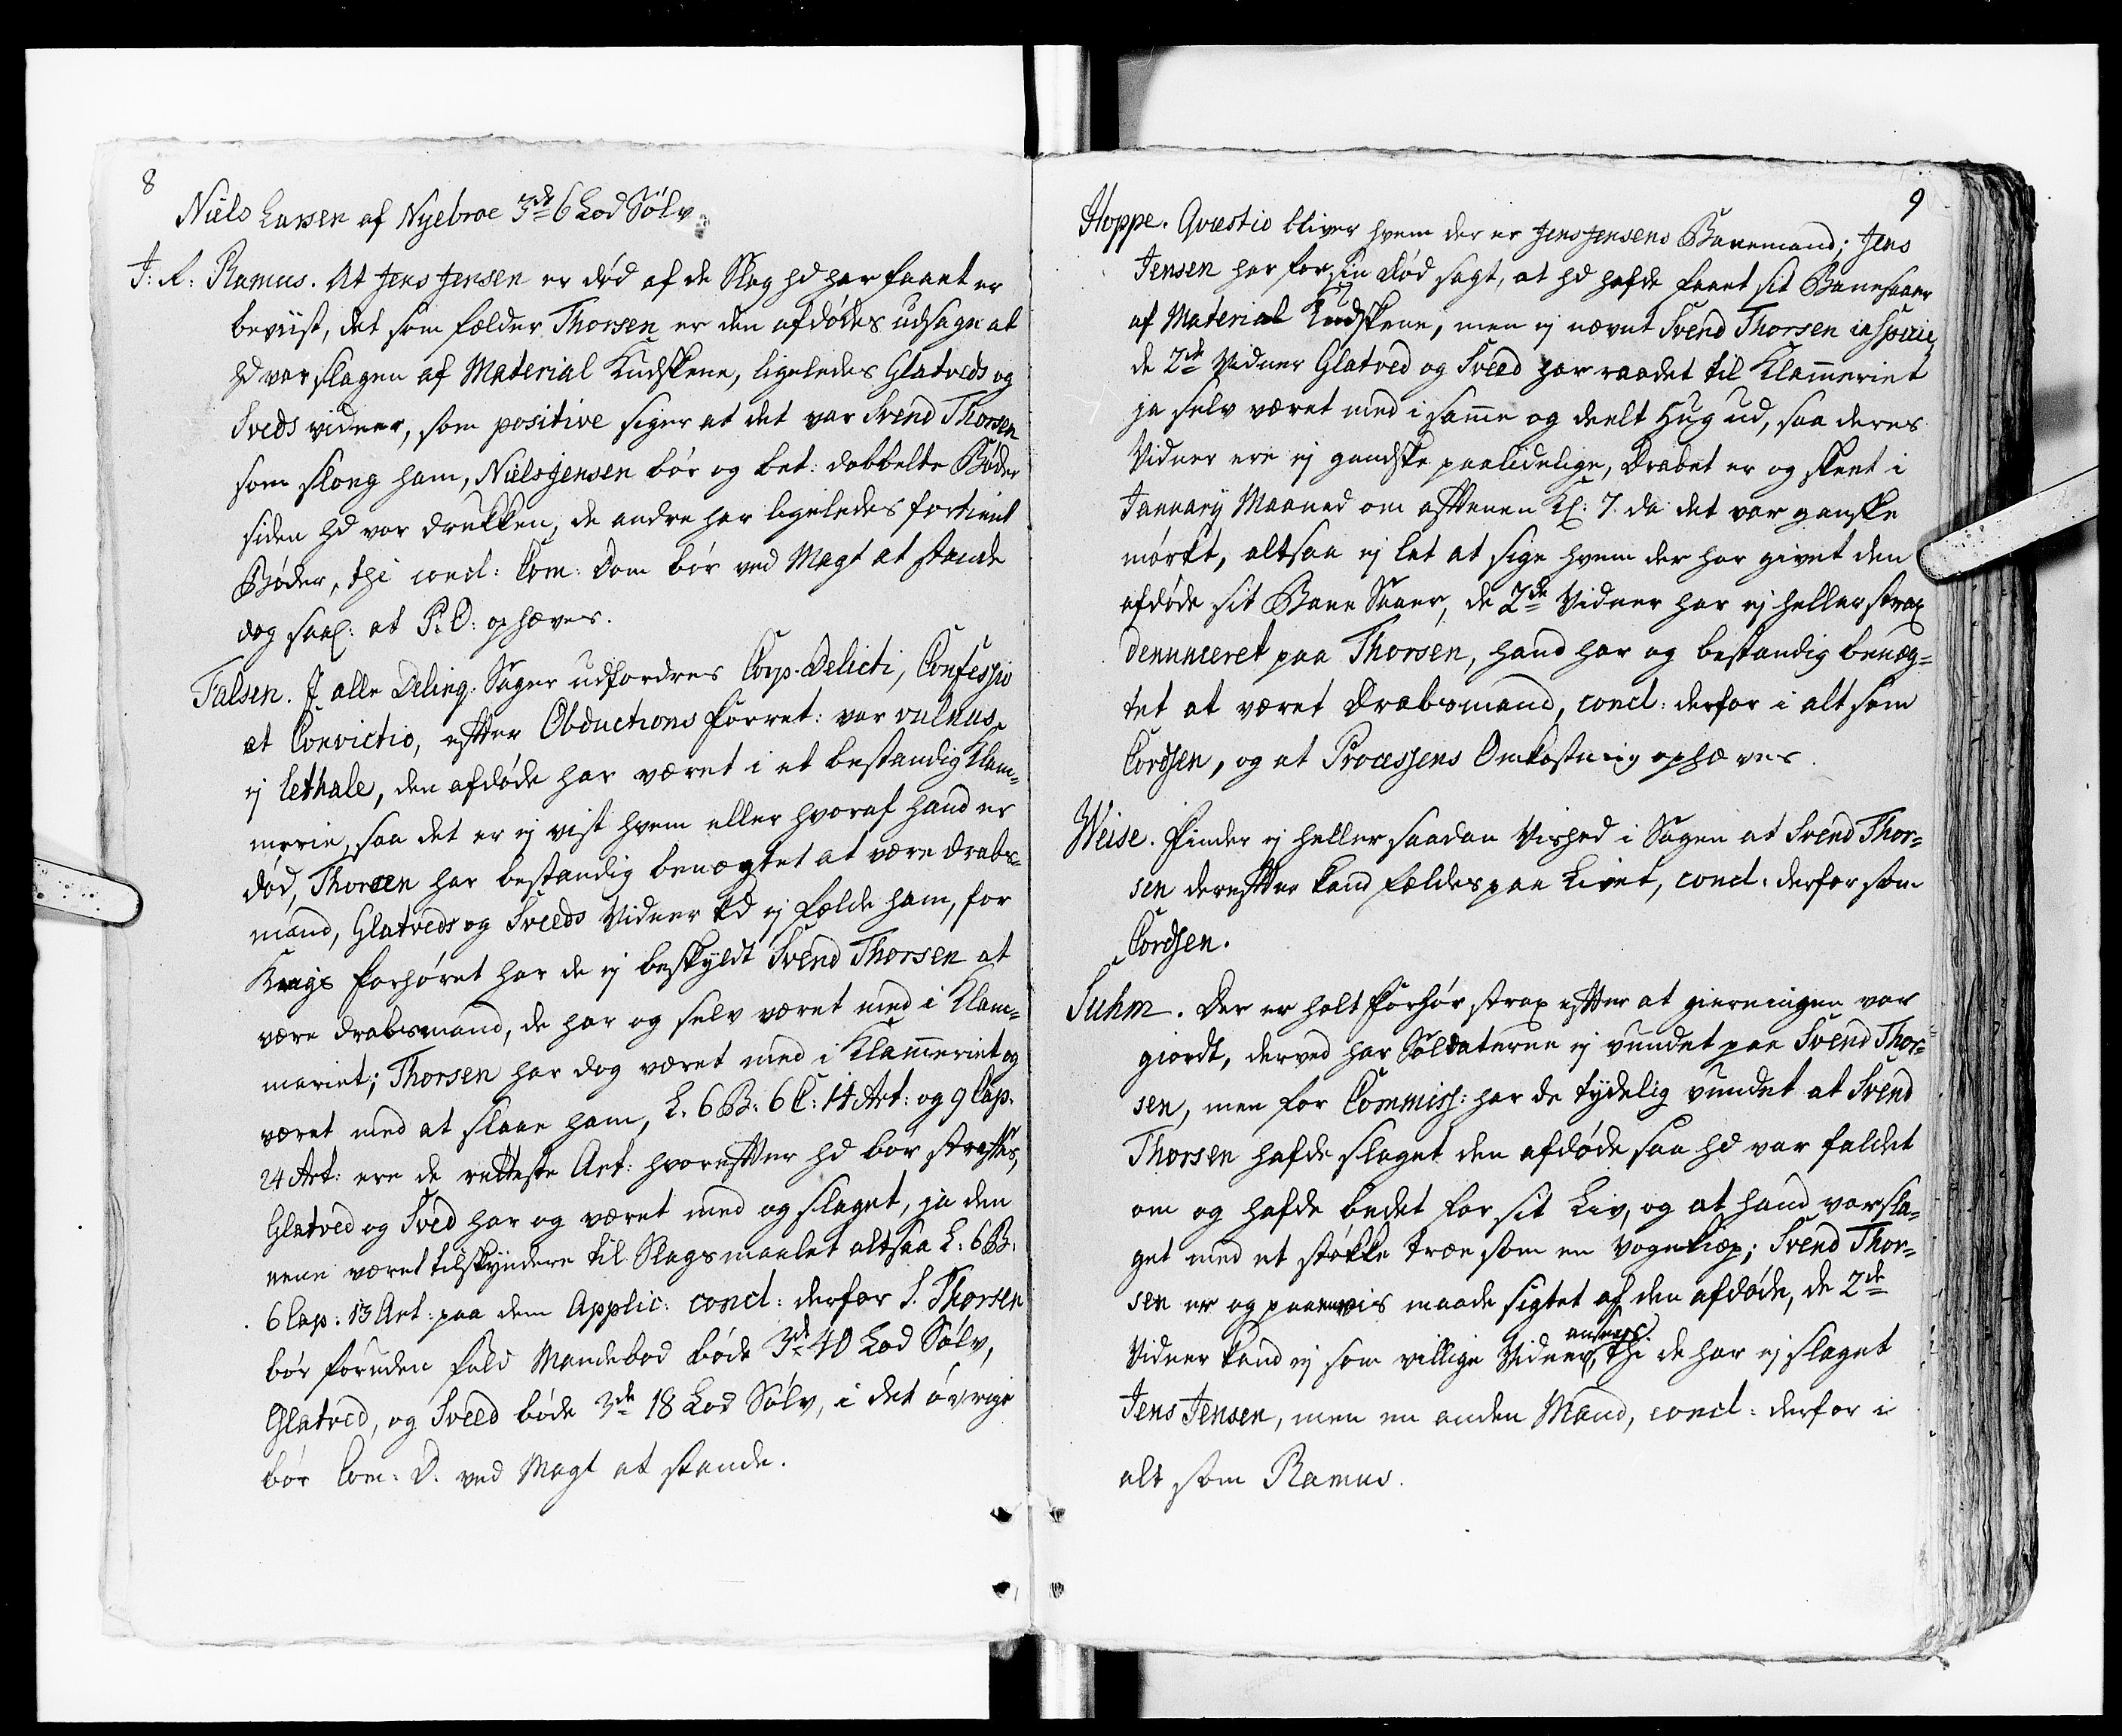 8
Niels Larsen af Nyebroe 3de 6 Lod Sölv.
J: F: Ramus. At Jens Jensen er död af de Slag hd har faaet er
beviist, det som fælder Thorsen er den afdödes udsagn at
hd var slagen af Material Kudskene, ligeledes Glatveds og
Sveds vidner, som positive siger at det var Svend Thorsen
som slog ham, Niels Jensen bör og bet: dobbelte Böder
siden hd var drukken, de andre har ligeledes fortient
Böder, thi concl: Com: Dom bör ved Magt at stande
dog saal: at P: O: ophæves.
Falsen. J alle Delinq: Sager udfordres Corp: Delicti, Confessio
et Convictio, efter Obductions Forret: var vulnus
ej lethale, den afdöde har været i et bestandig Klam-
merie, saa det er ej vist hvem eller hvoraf hand er
död, Thorsen har bestandig benægtet at være drabs-
mand, Glatveds og Sveeds Vidner kd ej fælde ham, for
Krigs Forhöret har de ej beskyldt Svend Thorsen at
være drabsmand, de har og selv været med i Klam-
meriet; Thorsen har dog været med i Klammeriet og
været med at slaae ham, L: 6 B: 6 C: 14 Art: og 9 Cap.
24 Art: ere de retteste Art: hvorefter hd bör straffes,
Glatved og Sved har og været med og slaget, ja den
eene været tilskyndere til Slagsmaalet altsaa L: 6 B.
6 Cap. 13 Art: paa dem Applic: concl: derfor S. Thorsen
bör foruden fuld Mandebod böde 3de 40 Lod Sölv,
Glatved, og Sveed böde 3de 18 Lod Sölv, i det övrige
bör Com: D. ved Magt at stande.
9
Hoppe. Qvæstio bliver hvem der er Jens Jensens Banemand; Jens
Jensen har for sin död sagt, at hd hafde faaet sit Banesaar
af Material Kudskene, men ej nævnt Svend Thorsen in Specie,
de 2de Vidner Glatved og Sveed har raadet til Klammeriet
ja selv været med i samme og deelt Hug ud, saa deres
Vidner ere ej gandske paalidelige, Drabet er og skeet i
Januarij Maaned om aftenen Kl: 7. da det var ganske
mörkt, altsaa ej let at sige hvem der har givet den
afdöde sit Bane Saar, de 2de Vidner har ej heller strax
denunceret paa Thorsen, hand har og bestandig benæg-
tet at været Drabsmand, concl: derfor i alt som
Cordsen, og at Processens Omkostning ophæves.
Weise. Finder ej heller saadan Vished i Sagen at Svend Thor-
sen derefter kand fældes paa Livet, concl: derfor som
Cordsen.
Suhm. Der er holt Forhör strax efter at gierningen var
giordt, derved har Soldaterne ej vundet paa Svend Thor-
sen, men for Commiss: har de tydelig vundet at Svend
Thorsen hafde slaget den afdöde saa hd var faldet
om og hafde bedet for sit Liv, og at hand var sla-
get med et stökke træe som en Vognkiæp; Svend Thor-
sen er og paa en vis maade sigtet af den afdöde, de 2de
Vidner kand ej som villige Vidner ansees, thi de har ej slaget
Jens Jensen, men en anden Mand, concl: derfor i
alt som Ramus.